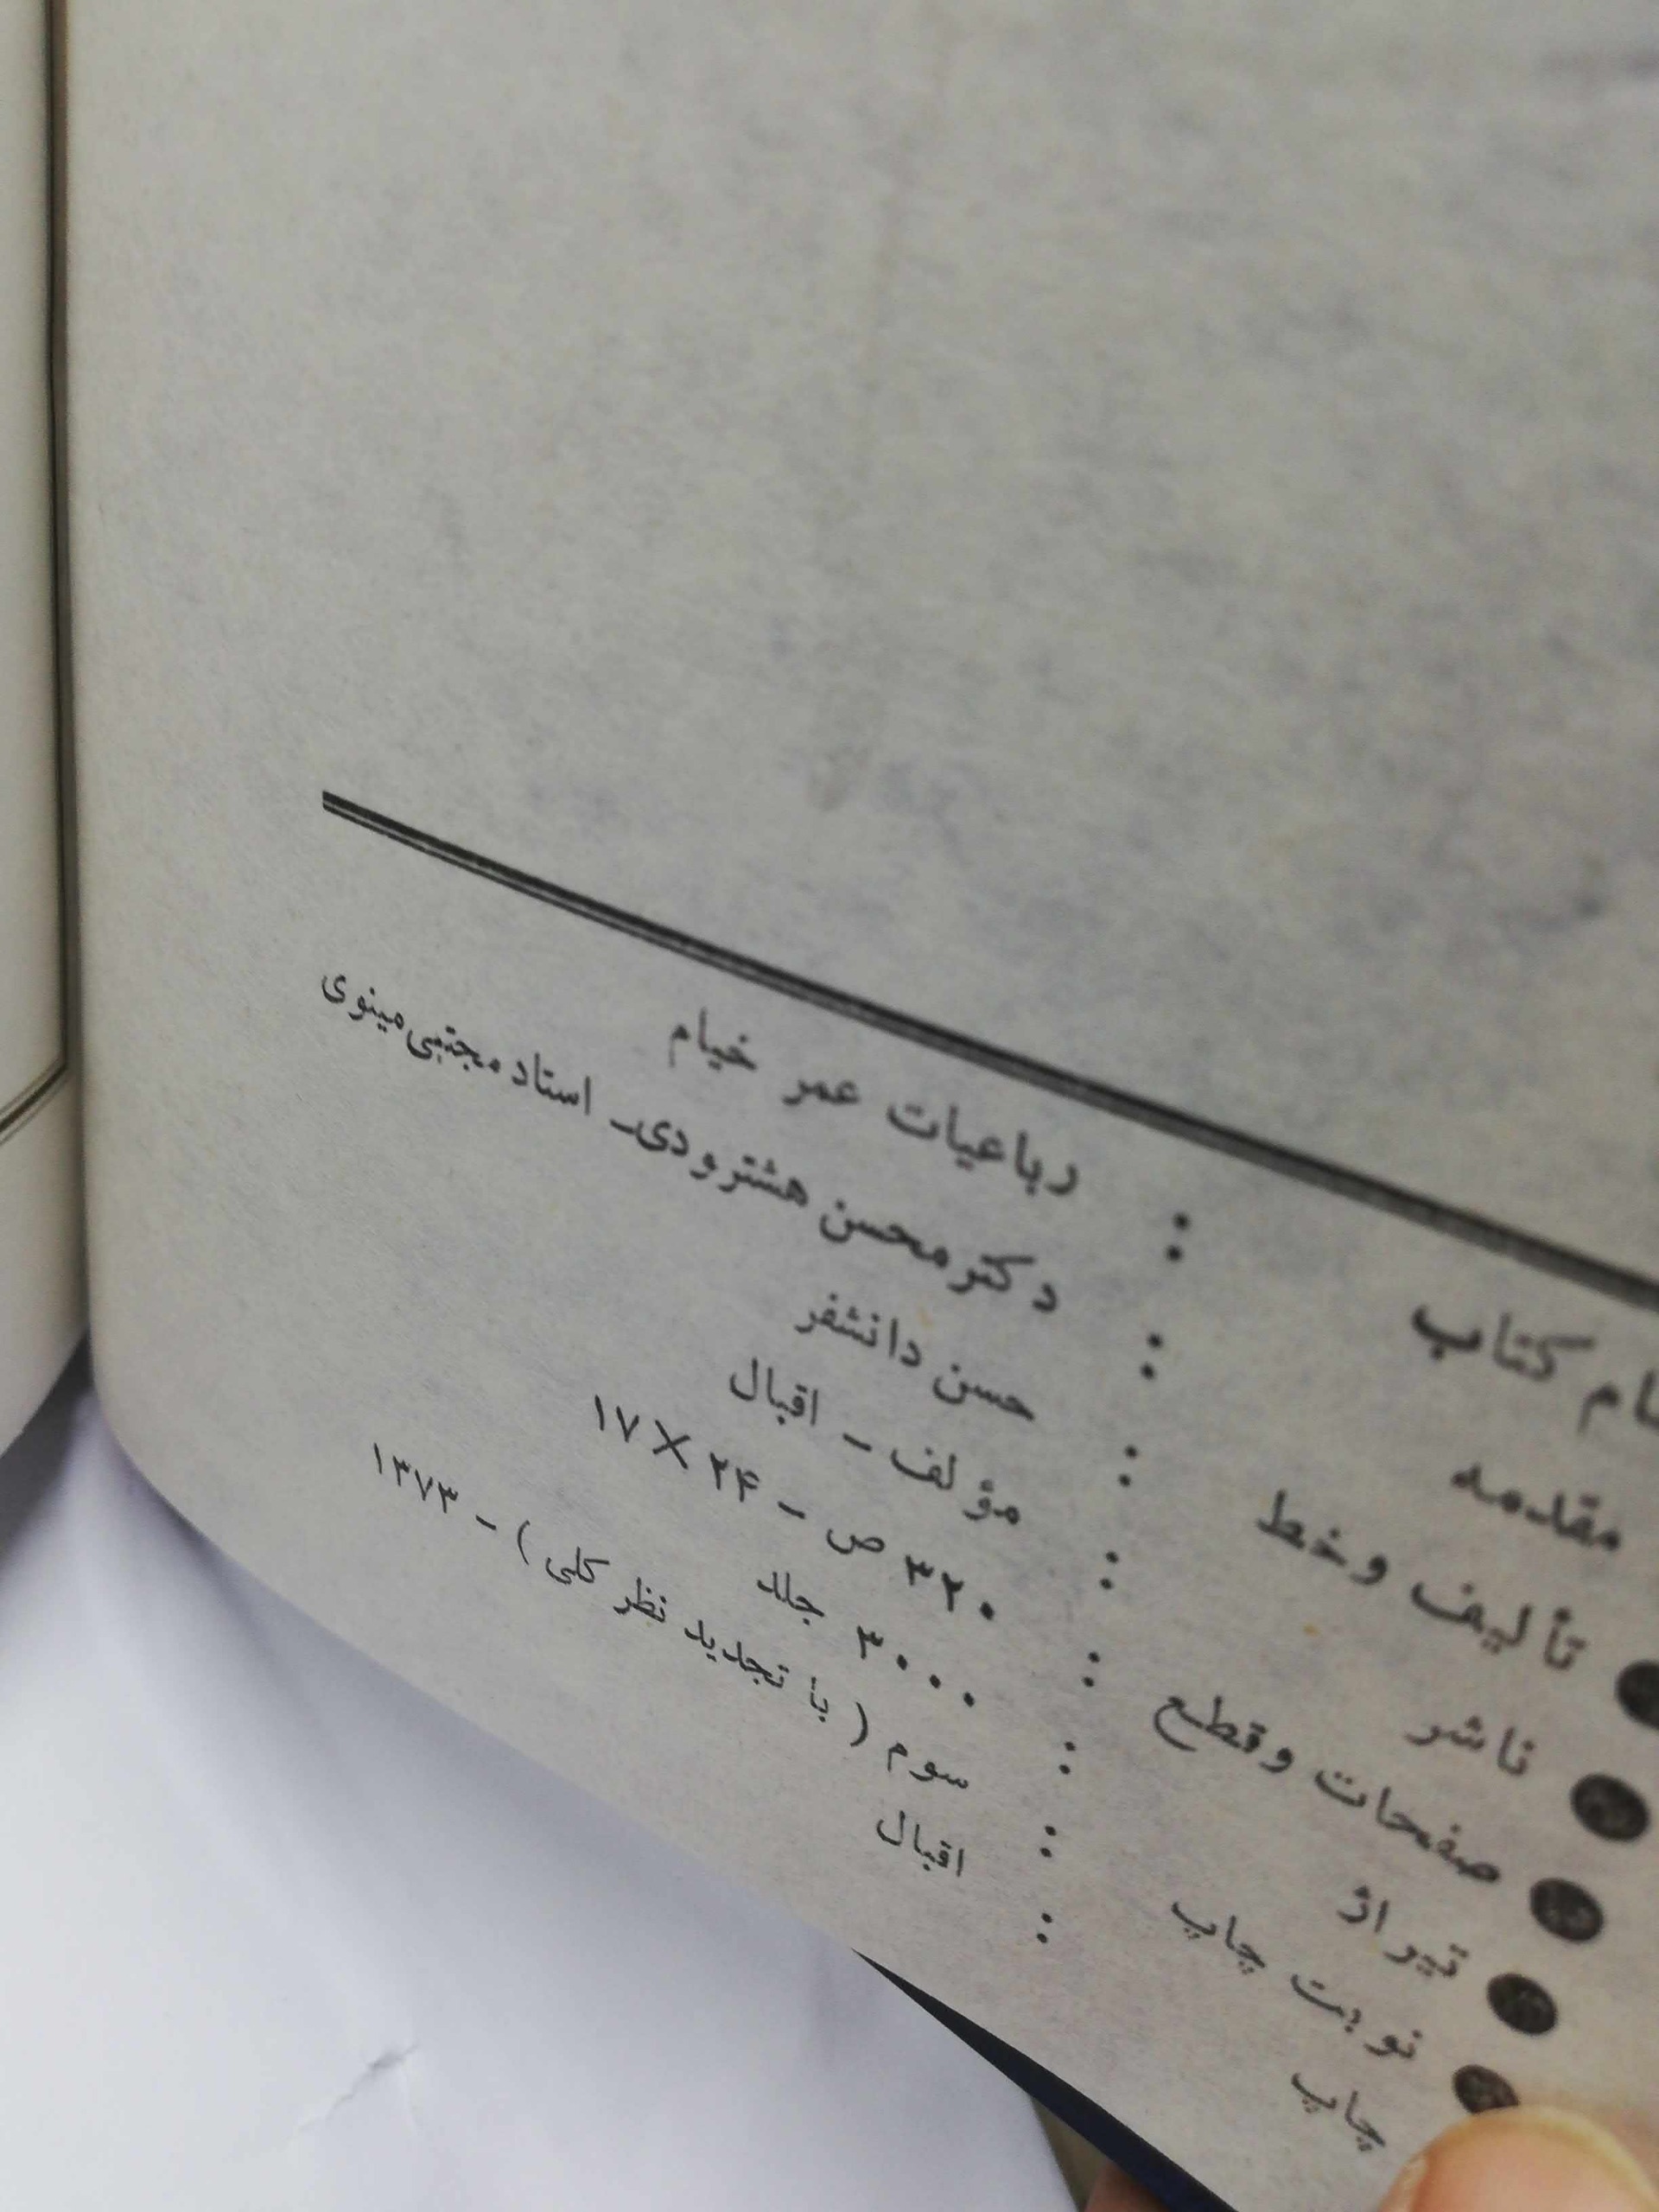 نام کتاب : رباعیات عمر خیام
مقدمه : دکتر محسن هشترودی ـ استاد مجتبی مینوی
تألیف و خط : حسن دانشفر
ناشر : مؤلف ـ اقبال
صفحات و قطع : ۳۲۰ ص ـ ۲۴ × ۱۷
تیراژ : ۳۰۰۰ جلد
نوبت چاپ : سوم ( با تجدید نظر کلی ) ـ ۱۳۷۳
چاپ : اقبال